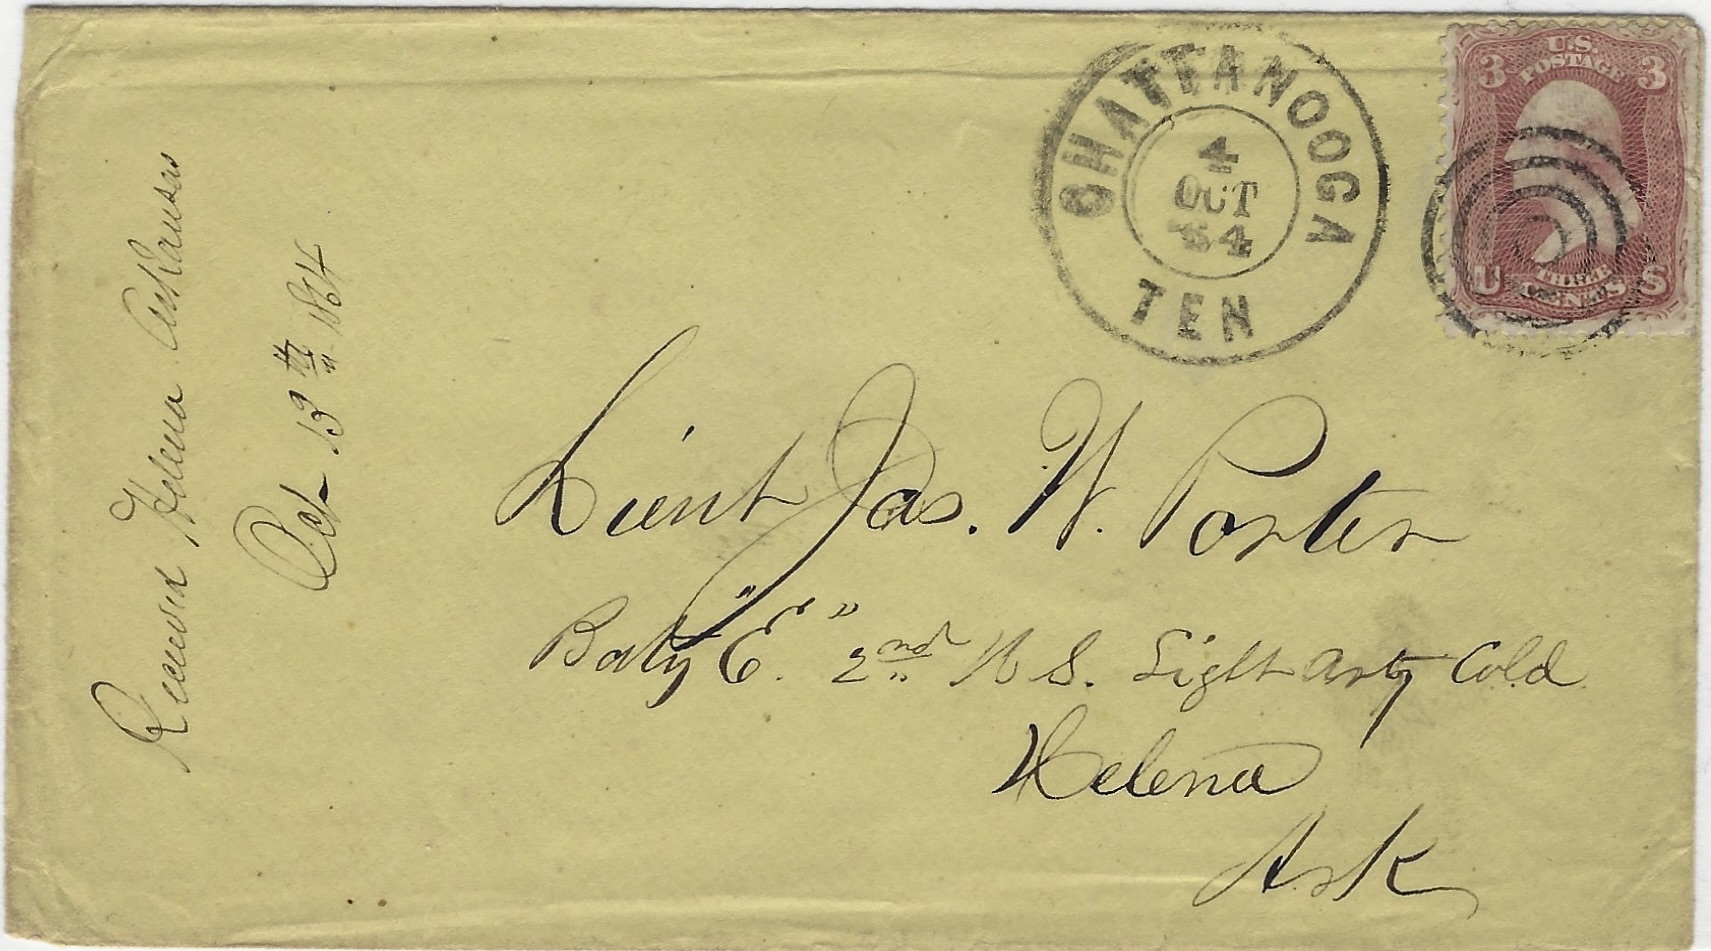 Received Helena Arkansas
Oct 13th 1864
CHATTANOOGA
4
OCT
'64
TEN
U.S.
POSTAGE
3 3
THREE
CENTS
U S
Lieut Jas. W. Porter
Baty "E" 2nd U S. Light Arty Cold
Helena
Ark